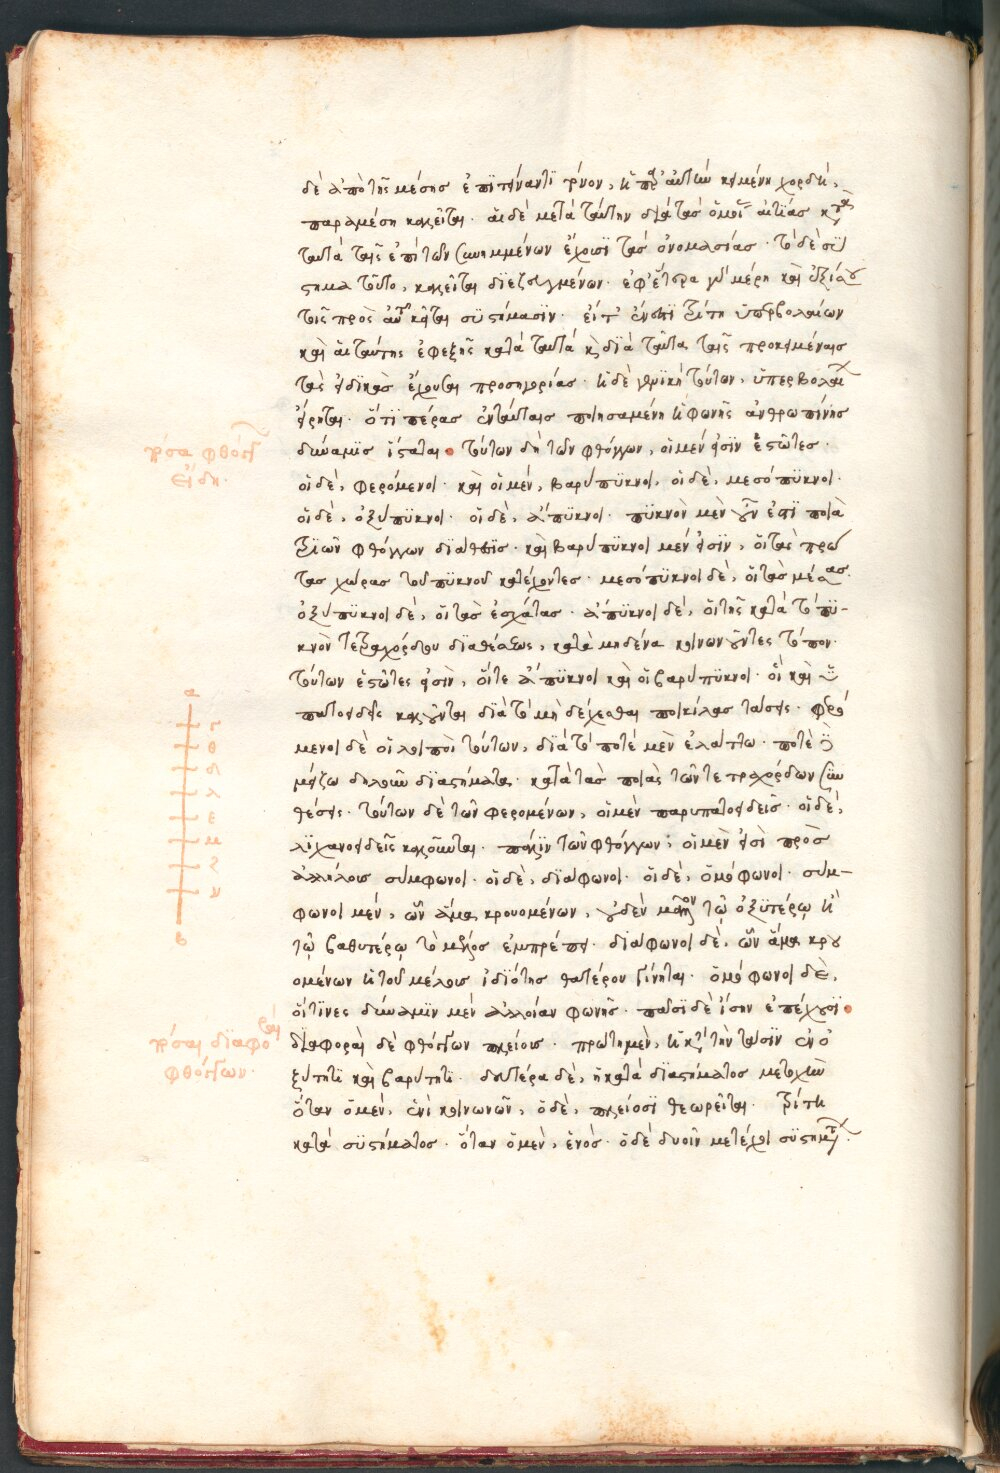 δὲ ἀπὸ τῆς μέσης ἐπιτείναντι τόνον, ἡ παρ' αὐτὴν κειμένη χορδὴ,
παραμέση καλεῖται. αἱ δὲ μετὰ ταύτην διὰ τὰς ὁμοίας αἰτίας κατὰ
ταυτὰ ταῖς ἐπὶ τῶν συνημμένων ἔχουσι τὰς ὀνομασίας. τὸ δὲ σύ
στημα τοῦτο, καλεῖται διεζευγμένων. ἐφ' ἕτερα μέρη καὶ ὀξεία
τοῖς πρὸς αὐτὴν κεῖται συστήμασιν. εἶτ' ἐνστῆ τρίτη ὑπερβολαίων
καὶ αἱ ταύτης ἐφεξῆς κατὰ ταυτὰ καὶ διὰ ταῦτα ταῖς προκειμέναις
τὰς εἰδικὰς ἔχουσαι προσηγορίας. ἡ δὲ γενικὴ τούτων, ὑπερβολαίων
εἴρηται. ὅτι πέρας ἐνταύταις ποιησαμένη ἡ φωνῆς ἀνθρωπίνης
δύναμις ἵσταται. τούτων δὴ τῶν φθόγγων, οἱ μέν εἰσιν ἑστῶτες.
πόσα φθόγγων
εἴδη.
οἱ δὲ, φερόμενοι. καὶ οἱ μέν, βαρύπυκνοι, οἱ δὲ, μεσόπυκνοι.
οἱ δὲ, ὀξύπυκνοι. οἱ δὲ, ἄπυκνοι. πυκνὸν μὲν οὖν ἐστὶ ποιὰ
τριῶν φθόγγων διάθεσις. καὶ βαρύπυκνοι μέν εἰσιν, οἱ τὰς πρώ
τας χώρας τοῦ πυκνοῦ κατέχοντες. μεσόπυκνοι δὲ, οἱ τὰς μέσας.
ὀξύπυκνοι δὲ, οἱ τὰς ἐσχάτας. ἄπυκνοι δὲ, οἱ τῆς κατὰ τὸ πυ-
κνὸν τετραχόρδου διαθέσεως, κατὰ μηδένα κοινωνοῦντες τόπον.
τούτων ἑστῶτες εἰσὶν, οἵ τε ἄπυκνοι καὶ οἱ βαρύπυκνοι. οἳ καὶ ὑ
πατοειδεῖς καλοῦνται διὰ τὸ μὴ δέχεσθαι ποικίλας τάσεις. φερό
μενοι δὲ οἱ λοιποὶ τούτων, διὰ τὸ ποτὲ μὲν ἐλάττω. ποτὲ δὲ
μείζω δηλοῦν διαστήματα. κατὰ τὰς ποιὰς τῶν τετραχόρδων συν
θέσεις. τούτων δὲ τῶν φερομένων, οἱ μὲν παρυπατοειδεῖς. οἱ δὲ,
λιχανοειδεῖς καλοῦνται. πάλιν τῶν φθόγγων, οἱ μὲν εἰσὶ πρὸς
ἀλλήλους σύμφωνοι. οἱ δὲ, διάφωνοι. οἱ δὲ, ὁμόφωνοι. σύμ-
φωνοι μέν, ὧν ἅμα κρουομένων, οὐδὲν μᾶλλον τῷ ὀξυτέρῳ ἢ
τῷ βαθυτέρῳ τὸ μέλος ἐμπρέπει. διάφωνοι δὲ, ὧν ἅμα κρου
ομένων ἡ τοῦ μέλους ἰδιότης θατέρου γίνηται. ὁμόφωνοι δὲ,
οἵτινες δύναμιν μὲν ἀλλοίαν φωνῆς. τάσι δὲ ἴσην ἐπέχουσι.
πόσαι διαφοραὶ
φθόγγων.
διαφοραὶ δὲ φθόγγων πλείους. πρώτη μὲν, ἡ κατὰ τὴν τάσιν ἐν ὀ
ξύτητι καὶ βαρύτητι. δευτέρα δὲ, ἡ κατὰ διαστήματος μετοχὴν
ὅταν ὁ μέν, ἑνὶ κοινωνῶν, ὁ δὲ, πλείοσι θεωρεῖται. τρίτη
κατὰ συστήματος. ὅταν ὁ μὲν, ἑνός. ὁ δὲ δυοῖν μετέχοι συστημάτων.